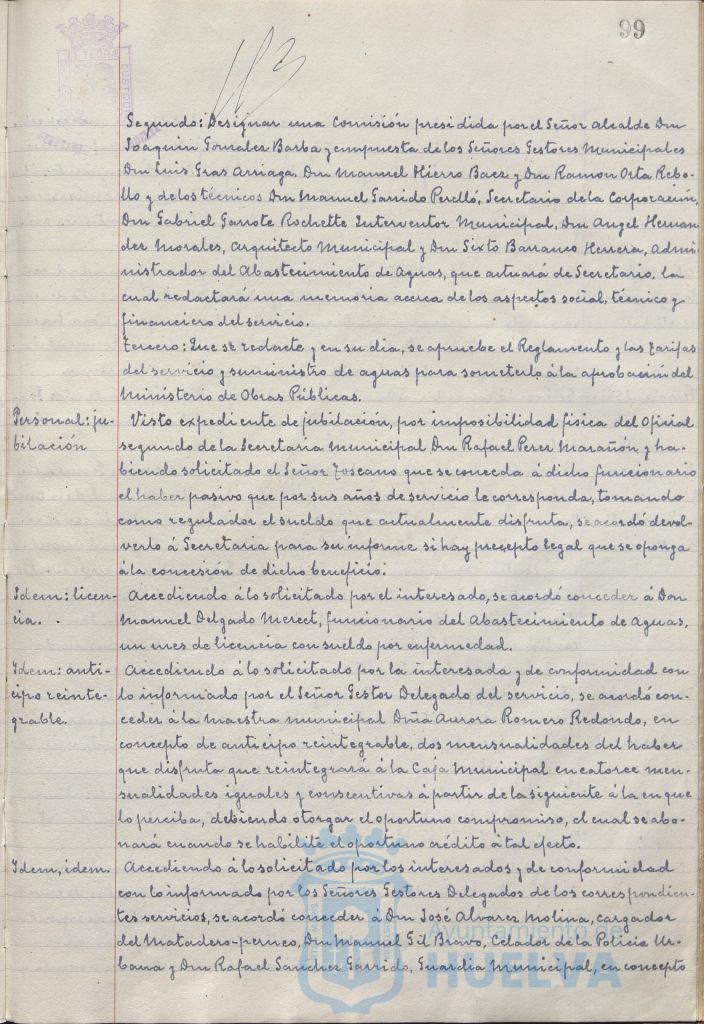 99
Segundo: Designar una Comisión presidida por el Señor Alcalde Don
Joaquin Gonzalez Barba y compuesta de los Señores Gestores Municipales
Don Luis Gras Arriaga, Don Manuel Hierro Baez y Don Ramon Orta Rebo-
llo y de los técnicos Don Manuel Garrido Perelló, Secretario de la Corporación,
Don Gabriel Garrote Rochette Interventor Municipal, Don Angel Hernan
dez Morales, Arquitecto Municipal y Don Sixto Barranco Herrera, Admi-
nistrador del Abastecimiento de Aguas, que actuará de Secretario, la
cual redactará una memoria acerca de los aspectos social, técnico y
financiero del servicio.
Tercero: Que se redacte y en su dia, se apruebe el Reglamento y las Tarifas
del servicio y suministro de aguas para someterlo á la aprobación del
Ministerio de Obras Públicas.
Personal: ju-
bilación
Visto expediente de jubilación, por imposibilidad fisica del Oficial
segundo de la Secretaria Municipal Don Rafael Perez Marañón, y ha-
biendo solicitado el Señor Toscano que se conceda á dicho funcionario
el haber pasivo que por sus años de servicio le corresponda, tomando
como regulador el sueldo que actualmente disfruta, se acordó devol-
verlo á Secretaria para su informe si hay precepto legal que se oponga
á la concesión de dicho beneficio.
Idem: licen-
cia.
Accediendo á lo solicitado por el interesado, se acordó conceder á Don
Manuel Delgado, funcionario del Abastecimiento de Aguas,
un mes de licencia con sueldo por enfermedad.
Idem: anti-
cipo reinte-
grable.
Accediendo á lo solicitado por la interesada y de conformidad con
lo informado por el Señor Gestor Delegado del servicio, se acordó con-
ceder á la maestra municipal Dña Aurora Romero Redondo, en
concepto de anticipo reintegrable, dos mensualidades del haber
que disfruta que reintegrará á la Caja Municipal en catorce men-
sualidades iguales y consecutivas á partir de la siguiente á la en que
lo perciba, debiendo otorgar el oportuno compromiso, el cual se abo-
nará cuando se habilite el oportuno crédito á tal efecto.
Idem, idem.
Accediendo á lo solicitado por los interesados y de conformidad
con lo informado por los Señores Gestores Delegados de los correspondien-
tes servicios, se acordó conceder á Don José Alvarez Molina, cargador
del Matadero-perneo, Don Manuel Gil Bravo, Celador de la Policia Ur-
bana y Don Rafael Sanchez Garrido, Guardia Municipal, en concepto
Ayuntamiento de
HUELVA